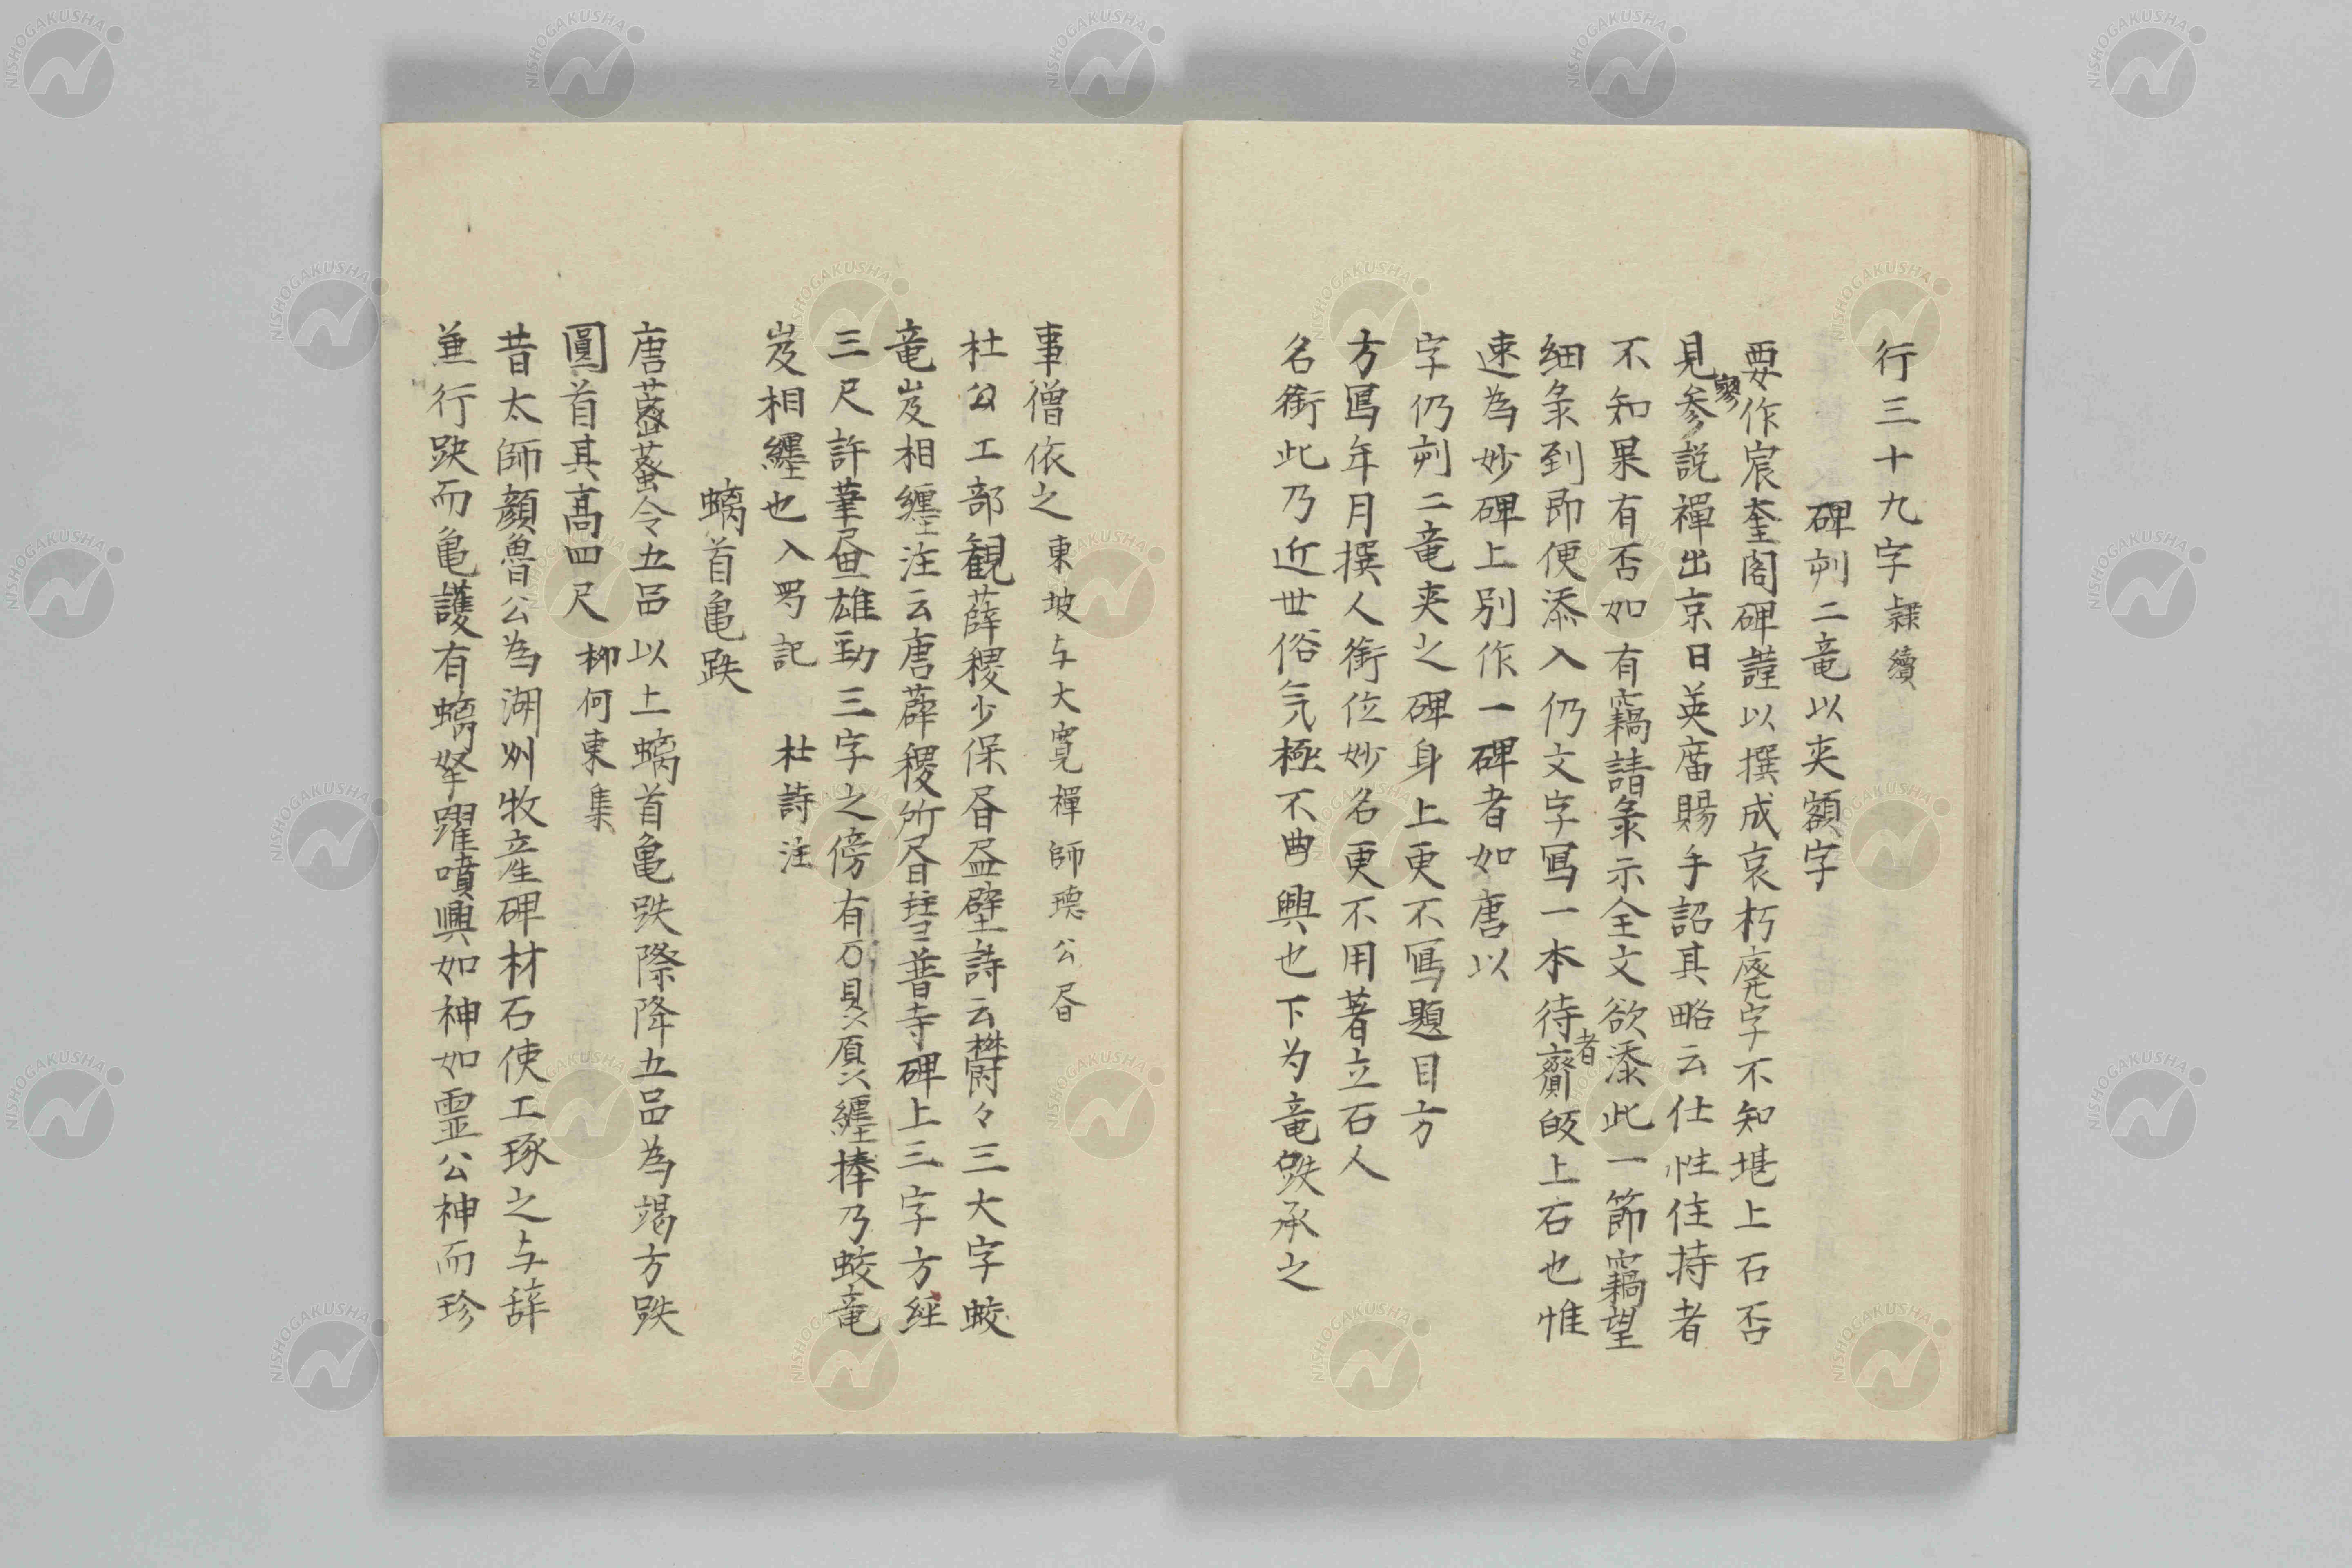 行三十九字 隷續
碑刻二竜以夾額字
要作宸奎閣碑謹以撰成哀朽廃字不知堪上石否
見参寥説禪出京日英廟賜手詔其略云仕性住持者
不知果有否如有竊請彔示全文欲添此一節竊望
細彔到即便添入仍文字寫一本待齎者皈上石也惟
速為妙碑上別作一碑者如唐以
字仍刻二竜夾之碑身上更不寫題目方
方寫年月撰人銜位妙名更不用著立石人
名銜此乃近世俗気極不典興也下为竜趺承之
事僧依之 東坡与大寛禅師璁公昏
杜公工部観薛稷少保昏畫壁詩云欝々三大字蛟
竜岌相纒注云唐薜稷所昏普寺碑上三字方経
三尺許筆昼雄勁三字之傍有纒捧乃蛟竜
岌相纒也入蜀記 杜詩注
螭首亀趺
唐葬令五品以上螭首亀趺際降五品為竭方趺
圓首其高四尺 柳何東集
昔太師顔魯公為湖州牧産碑材石使工琢之与辞
並行趺而亀護有螭拏躍噴興如神如霊公神而珍